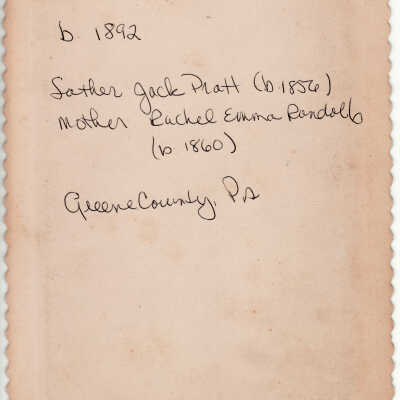 b. 1892
Father Jack Pratt (b. 1856)
Mother Rachel Emma Randolb
(b 1860)
Greene County, Pa